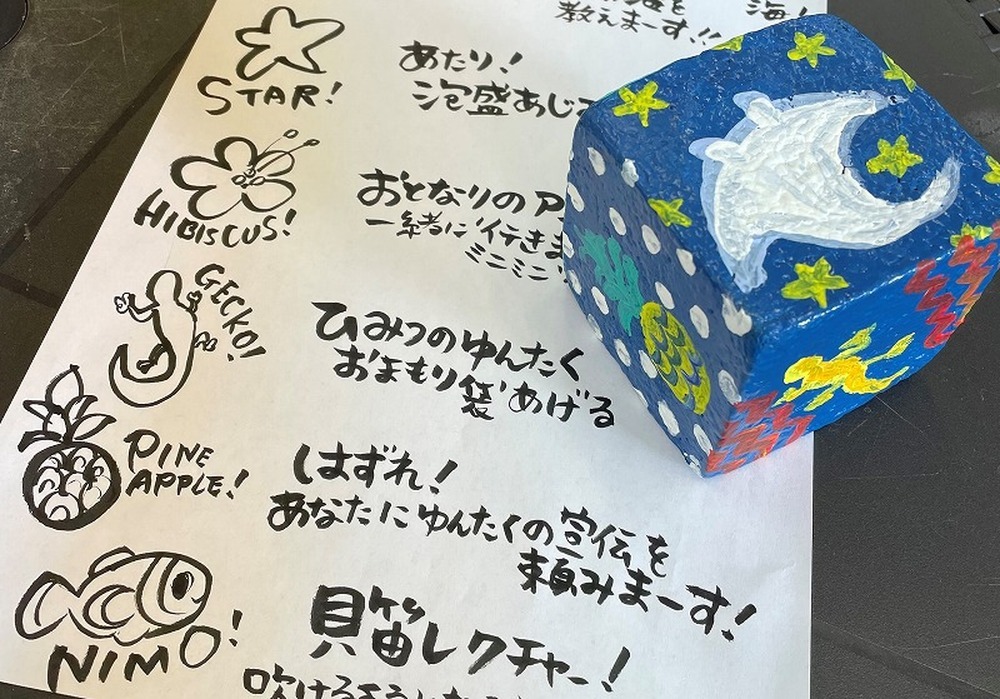 教えまーす!!
海!
STAR!
あたり!
泡盛あじ
HIBISCUS!
おとなりの
一緒に行きま
ミニミニ
GECKO!
ひみつのゆんたく
おまもり袋あげる
PINE
APPLE!
はずれ!
あなたにゆんたくの宣伝を
頼みまーす!
NIMO!
貝笛レクチャー!